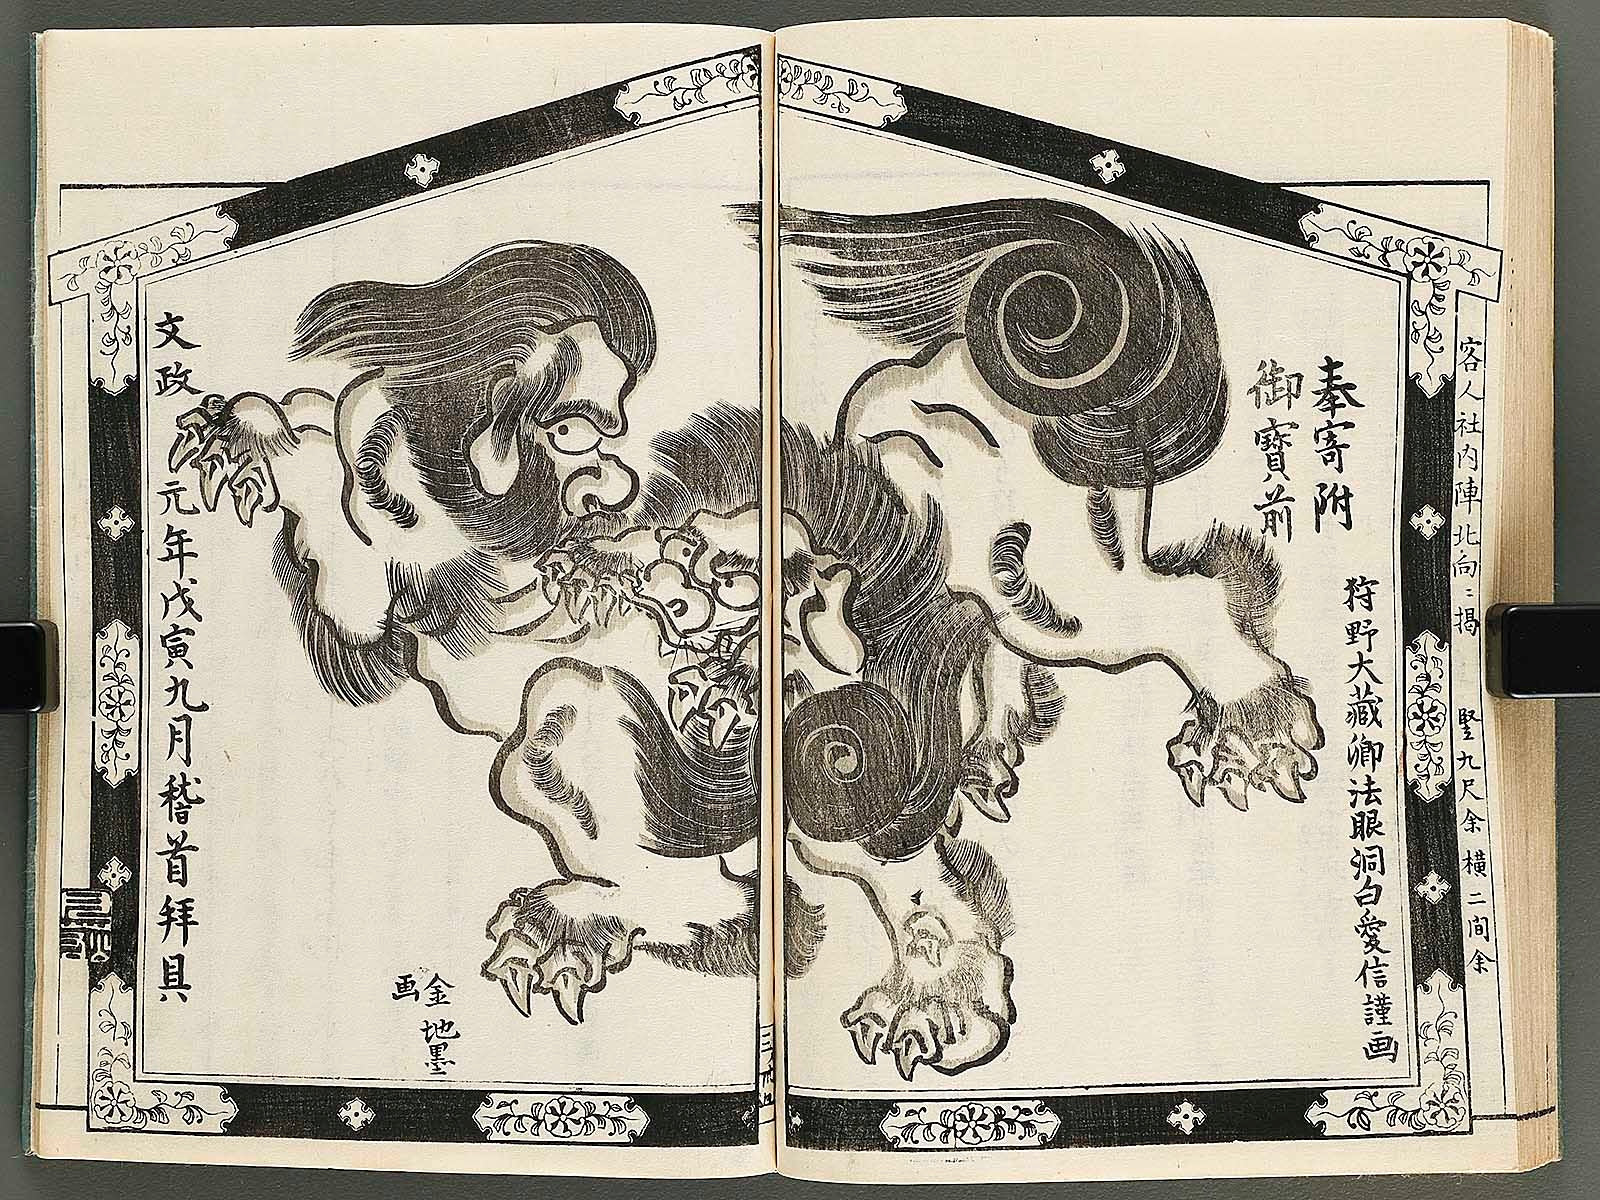 客人社内陣北向ニ掲 竪九尺余横二間余
奉寄附
御寳前
狩野大藏卿法眼洞白愛信謹画
金地墨
画
文政元年戊寅九月稽首拜具